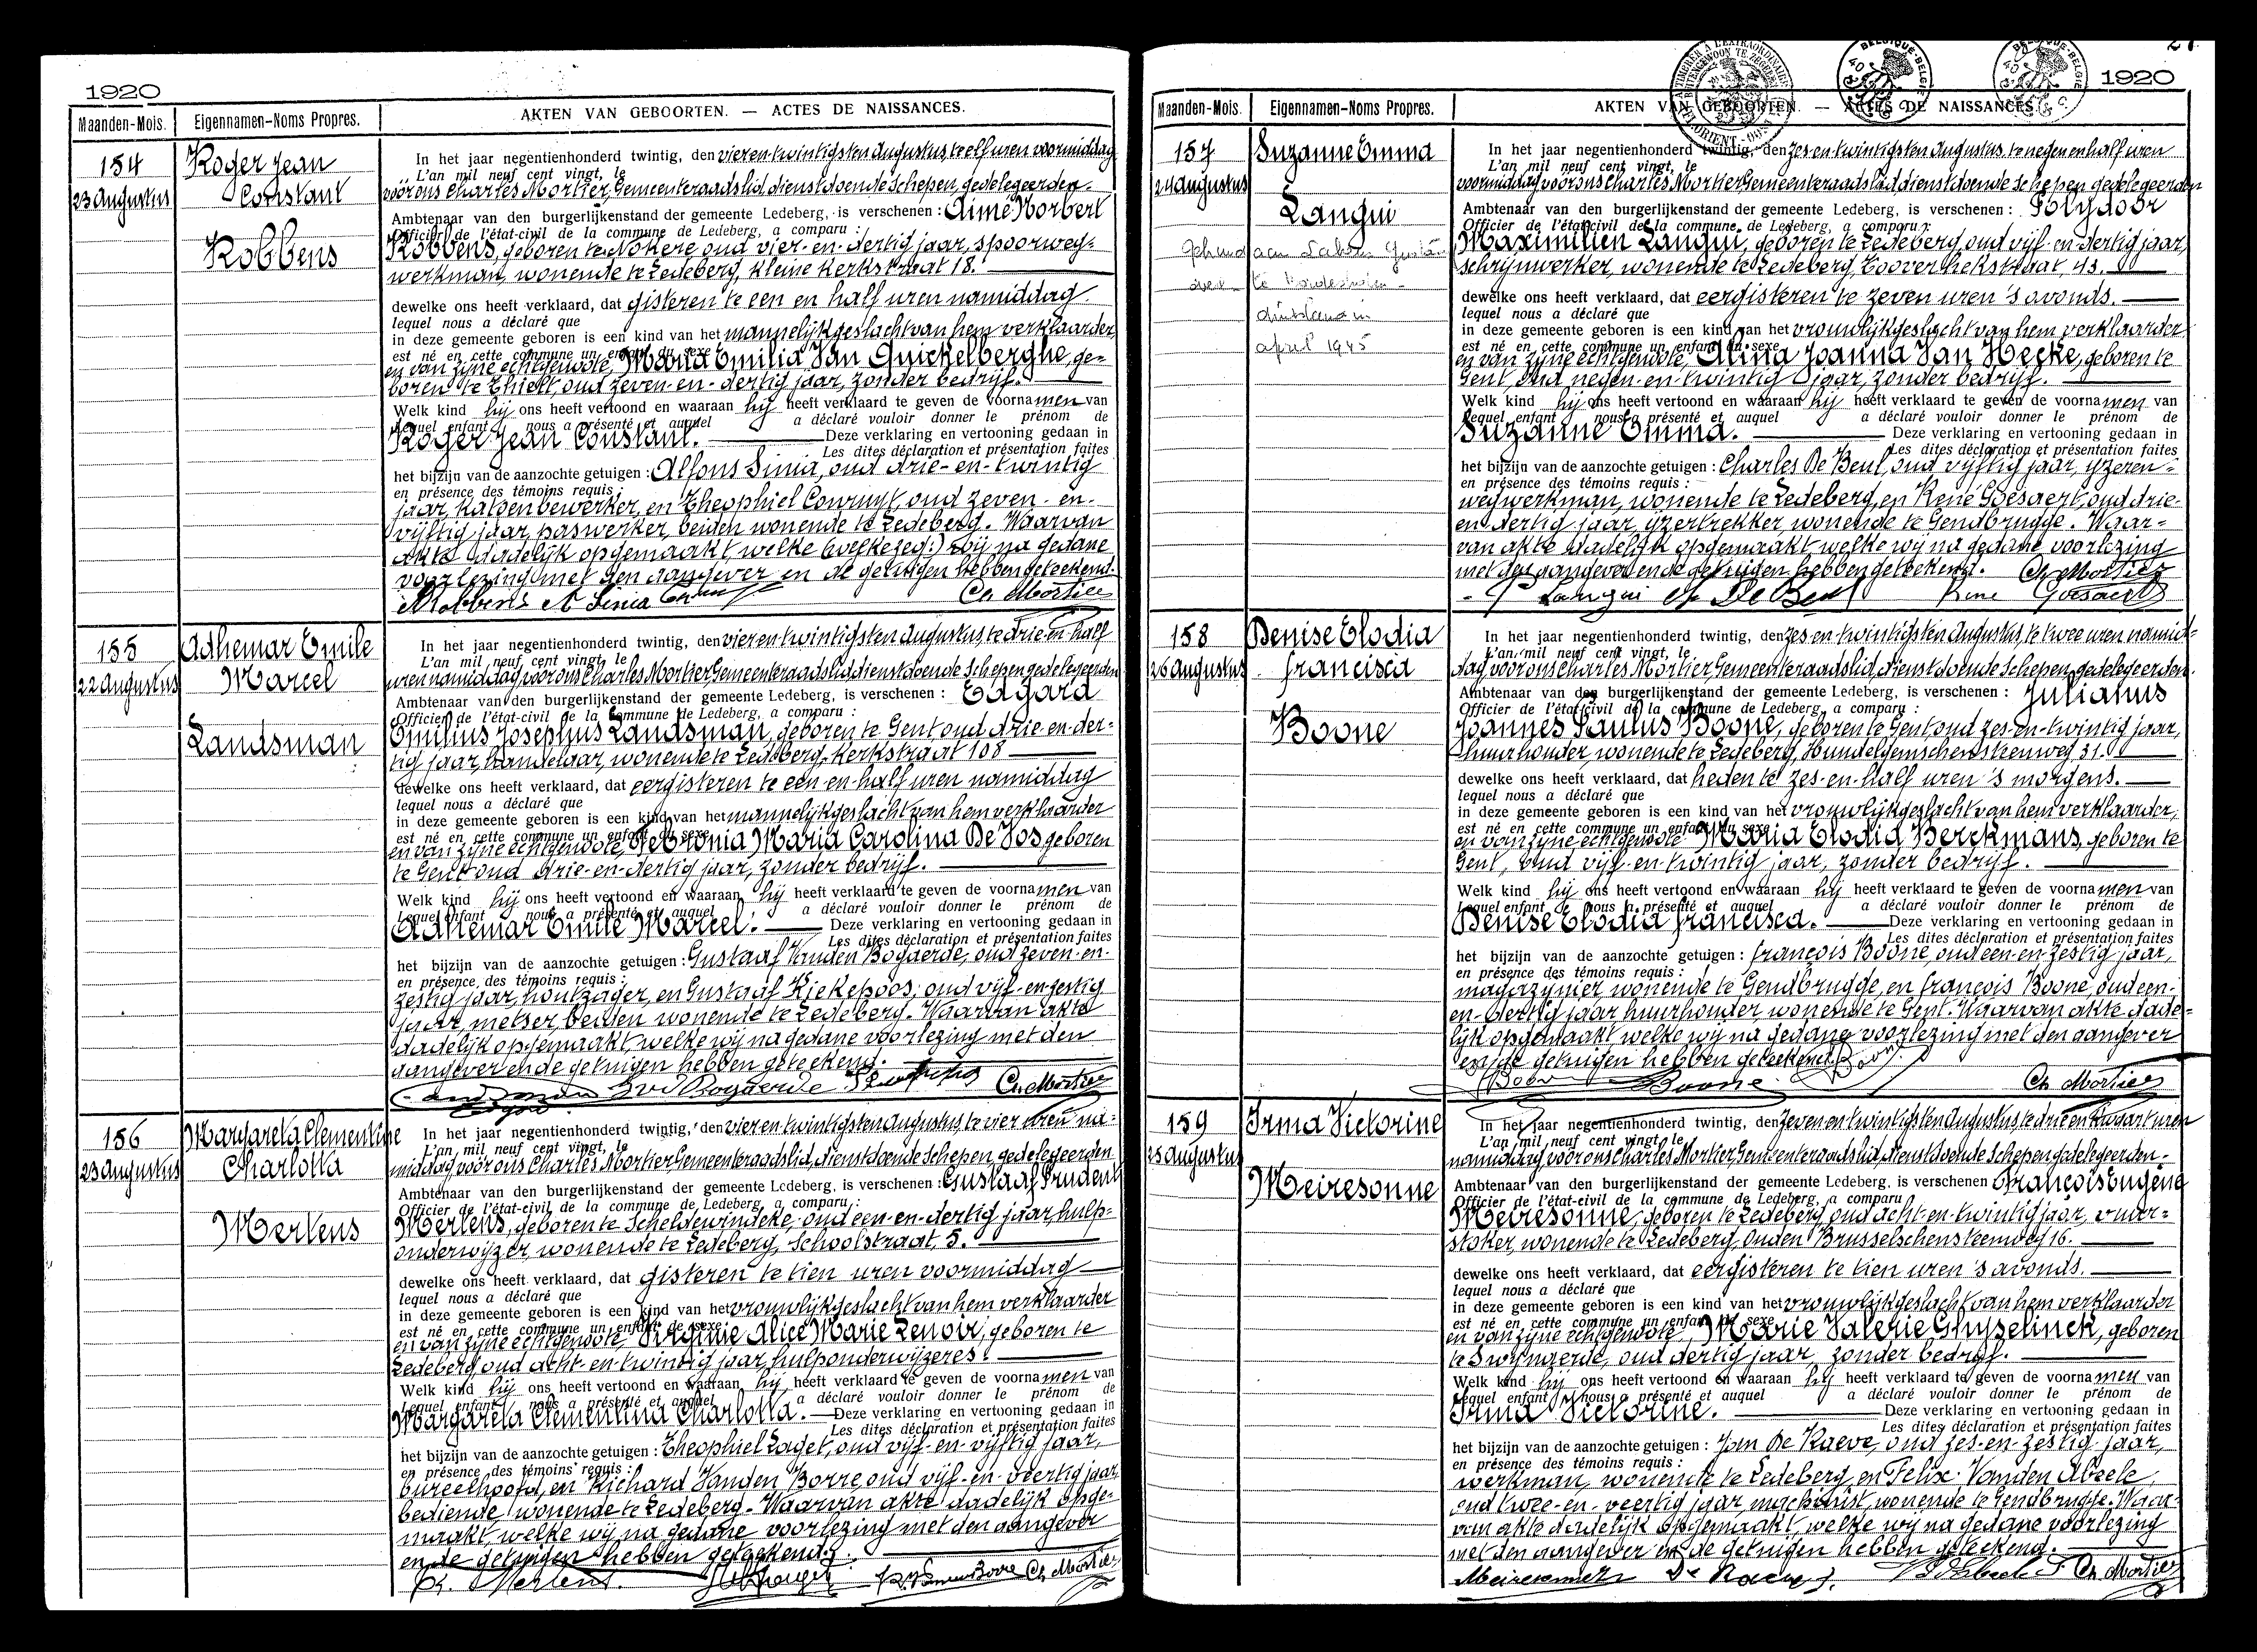 1920
Maanden-Mois.
Eigennamen-Noms Propres.
AKTEN VAN GEBOORTEN. — ACTES DE NAISSANCES.
154
23 Augustus
Roger Jean
Constant
Robbens
In het jaar negentienhonderd twintig, den vier en twintigsten Augustus, te elf uren voormiddag
L'an mil neuf cent vingt, le
voor ons Charles Mortier, Gemeenteraadslid, dienstdoende Schepen, gedelegeerden
Ambtenaar van den burgerlijkenstand der gemeente Ledeberg, is verschenen : Aimé Norbert
Officier de l'état-civil de la commune de Ledeberg, a comparu :
Robbens, geboren te Nokere oud vier-en-dertig jaar, spoorweg=
werkman, wonende te Ledeberg, kleine Kerkstraat 18.
dewelke ons heeft verklaard, dat gisteren te een en half uren namiddag
lequel nous a déclaré que
in deze gemeente geboren is een kind van het mannelijk geslacht van hem verklaarder
est né en cette commune un enfant du sexe
en van zijne echtgenoote, Maria Emilia Van Quickelberghe, ge=
boren te Thielt, oud zeven-en-dertig jaar, zonder bedrijf.
Welk kind hij ons heeft vertoond en waaraan hij heeft verklaard te geven de voornamen van
Lequel enfant nous a présenté et auquel a déclaré vouloir donner le prénom de
Roger Jean Constant. Deze verklaring en vertooning gedaan in
Les dites déclaration et présentation faites
het bijzijn van de aanzochte getuigen : Alfons Sinia, oud drie-en-twintig
en présence des témoins requis :
jaar, katoenbewerker, en Theophiel Conruyt, oud zeven-en-
vijftig jaar, paswerker, beiden wonende te Ledeberg. Waarvan
akte dadelijk opgemaakt, welke (welke zeg:) wij na gedane
voorlezing met den aangever en de getuigen hebben geteekend.
A Robbens A Sinia Ch. Mortier
155
22 Augustus
Adhemar Emile
Marcel
Landsman
In het jaar negentienhonderd twintig, den vier en twintigsten Augustus, te drie-en-half
L'an mil neuf cent vingt, le
uren namiddag, voor ons Charles Mortier, Gemeenteraadslid, dienstdoende Schepen, gedelegeerden
Ambtenaar van den burgerlijkenstand der gemeente Ledeberg, is verschenen : Edgard
Officier de l'état-civil de la commune de Ledeberg, a comparu :
Emilius Josephus Landsman, geboren te Gent oud drie-en-der=
tig jaar, handelaar, wonende te Ledeberg, Kerkstraat 108
dewelke ons heeft verklaard, dat eergisteren te een-en-half uren namiddag
lequel nous a déclaré que
in deze gemeente geboren is een kind van het mannelijk geslacht van hem verklaarder
est né en cette commune un enfant du sexe
en van zijne echtgenoote, Petronia Maria Carolina De Vos geboren
te Gent oud drie-en-dertig jaar, zonder bedrijf.
Welk kind hij ons heeft vertoond en waaraan hij heeft verklaard te geven de voornamen van
Lequel enfant nous a présenté et auquel a déclaré vouloir donner le prénom de
Adhemar Emile Marcel. Deze verklaring en vertooning gedaan in
Les dites déclaration et présentation faites
het bijzijn van de aanzochte getuigen : Gustaaf Vanden Bogaerde, oud zeven-en-
en présence des témoins requis :
zestig jaar, houtzager, en Gustaaf Kiekepoos, oud vijf-en-zestig
jaar, metser, beiden wonende te Ledeberg. Waarvan akte
dadelijk opgemaakt, welke wij na gedane voorlezing met den
aangever en de getuigen hebben geteekend.
Landsman Gvd Bogaerde Ch. Mortier
156
23 Augustus
Margareta Clementine
Charlotta
Mertens
In het jaar negentienhonderd twintig, den vier en twintigsten Augustus, te vier uren na=
L'an mil neuf cent vingt, le
middag voor ons Charles Mortier, Gemeenteraadslid, dienstdoende Schepen gedelegeerden
Ambtenaar van den burgerlijkenstand der gemeente Ledeberg, is verschenen : Gustaaf Prudent
Officier de l'état-civil de la commune de Ledeberg, a comparu :
Mertens, geboren te Scheldewindeke, oud een-en-dertig jaar, hulp=
onderwijzer, wonende te Ledeberg, Schoolstraat, 5.
dewelke ons heeft verklaard, dat gisteren te tien uren voormiddag
lequel nous a déclaré que
in deze gemeente geboren is een kind van het vrouwlijk geslacht van hem verklaarder
est né en cette commune un enfant du sexe
en van zijne echtgenoote, Virginie Alice Marie Lenoir, geboren te
Ledeberg, oud acht-en-twintig jaar, hulponderwijzeres.
Welk kind hij ons heeft vertoond en waaraan hij heeft verklaard te geven de voornamen van
Lequel enfant nous a présenté et auquel a déclaré vouloir donner le prénom de
Margareta Clementina Charlotta. Deze verklaring en vertooning gedaan in
Les dites déclaration et présentation faites
het bijzijn van de aanzochte getuigen : Theophiel Laget, oud vijf-en-vijftig jaar,
en présence des témoins requis :
bureelhoofd, en Richard Vanden Borre, oud vijf-en-veertig jaar,
bediende, wonende te Ledeberg. Waarvan akte dadelijk opge=
maakt, welke wij na gedane voorlezing met den aangever
en de getuigen hebben geteekend.
Mertens. Ch. Mortier
1920
Maanden-Mois.
Eigennamen-Noms Propres.
AKTEN VAN GEBOORTEN. — ACTES DE NAISSANCES.
157
24 Augustus
Suzanne Emma
Langui
april 1945
In het jaar negentienhonderd twintig, den zes-en-twintigsten Augustus, te negen en half uren
L'an mil neuf cent vingt, le
voormiddag voor ons Charles Mortier, Gemeenteraadslid, dienstdoende Schepen gedelegeerden
Ambtenaar van den burgerlijkenstand der gemeente Ledeberg, is verschenen : Polydoor
Officier de l'état-civil de la commune de Ledeberg, a comparu :
Maximilien Langui, geboren te Ledeberg, oud vijf-en-dertig jaar,
schrijnwerker, wonende te Ledeberg, Tooverhekstraat, 43.
dewelke ons heeft verklaard, dat eergisteren te zeven uren 's avonds.
lequel nous a déclaré que
in deze gemeente geboren is een kind van het vrouwlijk geslacht van hem verklaarder,
est né en cette commune un enfant du sexe
en van zijne echtgenoote, Alina Joanna Van Hecke, geboren te
Gent, oud negen-en-twintig jaar, zonder bedrijf.
Welk kind hij ons heeft vertoond en waaraan hij heeft verklaard te geven de voornamen van
Lequel enfant nous a présenté et auquel a déclaré vouloir donner le prénom de
Suzanne Emma. Deze verklaring en vertooning gedaan in
Les dites déclaration et présentation faites
het bijzijn van de aanzochte getuigen : Charles De Beul, oud vijftig jaar, ijzeren=
en présence des témoins requis :
wegwerkman, wonende te Ledeberg, en René Goesaert, oud drie-
en-dertig jaar, ijzertrekker wonende te Gendbrugge. Waar=
van akte dadelijk opgemaakt, welke wij na gedane voorlezing
met den aangever en de getuigen hebben geteekend. Ch. Mortier
P Langui Ch De Beul Rene Goesaert
158
26 Augustus
Denise Elodia
francisca
Boone
In het jaar negentienhonderd twintig, den zes-en-twintigsten Augustus, te twee uren namid=
L'an mil neuf cent vingt, le
dag, voor ons Charles Mortier, Gemeenteraadslid, dienstdoende Schepen, gedelegeerden
Ambtenaar van den burgerlijkenstand der gemeente Ledeberg, is verschenen : Julianus
Officier de l'état-civil de la commune de Ledeberg, a comparu :
Joannes Paulus Boone, geboren te Gent, oud zes-en-twintig jaar,
huurhouder, wonende te Ledeberg, Hundelgemschensteenweg 31.
dewelke ons heeft verklaard, dat heden te zes-en-half uren 's morgens.
lequel nous a déclaré que
in deze gemeente geboren is een kind van het vrouwlijk geslacht van hem verklaarder,
est né en cette commune un enfant du sexe
en van zijne echtgenoote Maria Elodia Berckmans, geboren te
Gent, oud vijf-en-twintig jaar, zonder bedrijf.
Welk kind hij ons heeft vertoond en waaraan hij heeft verklaard te geven de voornamen van
Lequel enfant nous a présenté et auquel a déclaré vouloir donner le prénom de
Denise Elodia francisca. Deze verklaring en vertooning gedaan in
Les dites déclaration et présentation faites
het bijzijn van de aanzochte getuigen : françois Boone oud een-en-zestig jaar,
en présence des témoins requis :
magazijnier wonende te Gendbrugge, en françois Boone, oud een-
en-dertig jaar huurhouder wonende te Gent. Waarvan akte dade=
lijk opgemaakt welke wij na gedane voorlezing met den aangever
en de getuigen hebben geteekend.
Boone Boone Ch. Mortier
159
25 Augustus
Irma Victorine
Meiresonne
In het jaar negentienhonderd twintig, den zeven en twintigsten Augustus, te drie en kwart uren
L'an mil neuf cent vingt, le
namiddag voor ons Charles Mortier, Gemeenteraadslid, dienstdoende Schepen gedelegeerden.
Ambtenaar van den burgerlijkenstand der gemeente Ledeberg, is verschenen François Eugène
Officier de l'état-civil de la commune de Ledeberg, a comparu
Meiresonne, geboren te Ledeberg, oud acht-en-twintig jaar, vuur=
stoker, wonende te Ledeberg, Ouden Brusselschensteenweg 16.
dewelke ons heeft verklaard, dat eergisteren te tien uren 's avonds.
lequel nous a déclaré que
in deze gemeente geboren is een kind van het vrouwlijk geslacht van hem verklaarder
est né en cette commune un enfant du sexe
en van zijne echtgenoote, Marie Valerie Ghyselinck, geboren
te Swijnaerde, oud dertig jaar, zonder bedrijf.
Welk kind hij ons heeft vertoond en waaraan hij heeft verklaard te geven de voornamen van
Lequel enfant nous a présenté et auquel a déclaré vouloir donner le prénom de
Irma Victorine. Deze verklaring en vertooning gedaan in
Les dites déclaration et présentation faites
het bijzijn van de aanzochte getuigen : Jan De Raeve, oud zes-en-zestig jaar,
en présence des témoins requis :
werkman, wonende te Ledeberg, en Felix Vanden Abeele,
oud twee-en-veertig jaar machinist, wonende te Gendbrugge. Waar=
van akte dadelijk opgemaakt, welke wij na gedane voorlezing
met den aangever en de getuigen hebben geteekend.
Meiresonne De Raeve J. Ch. Mortier